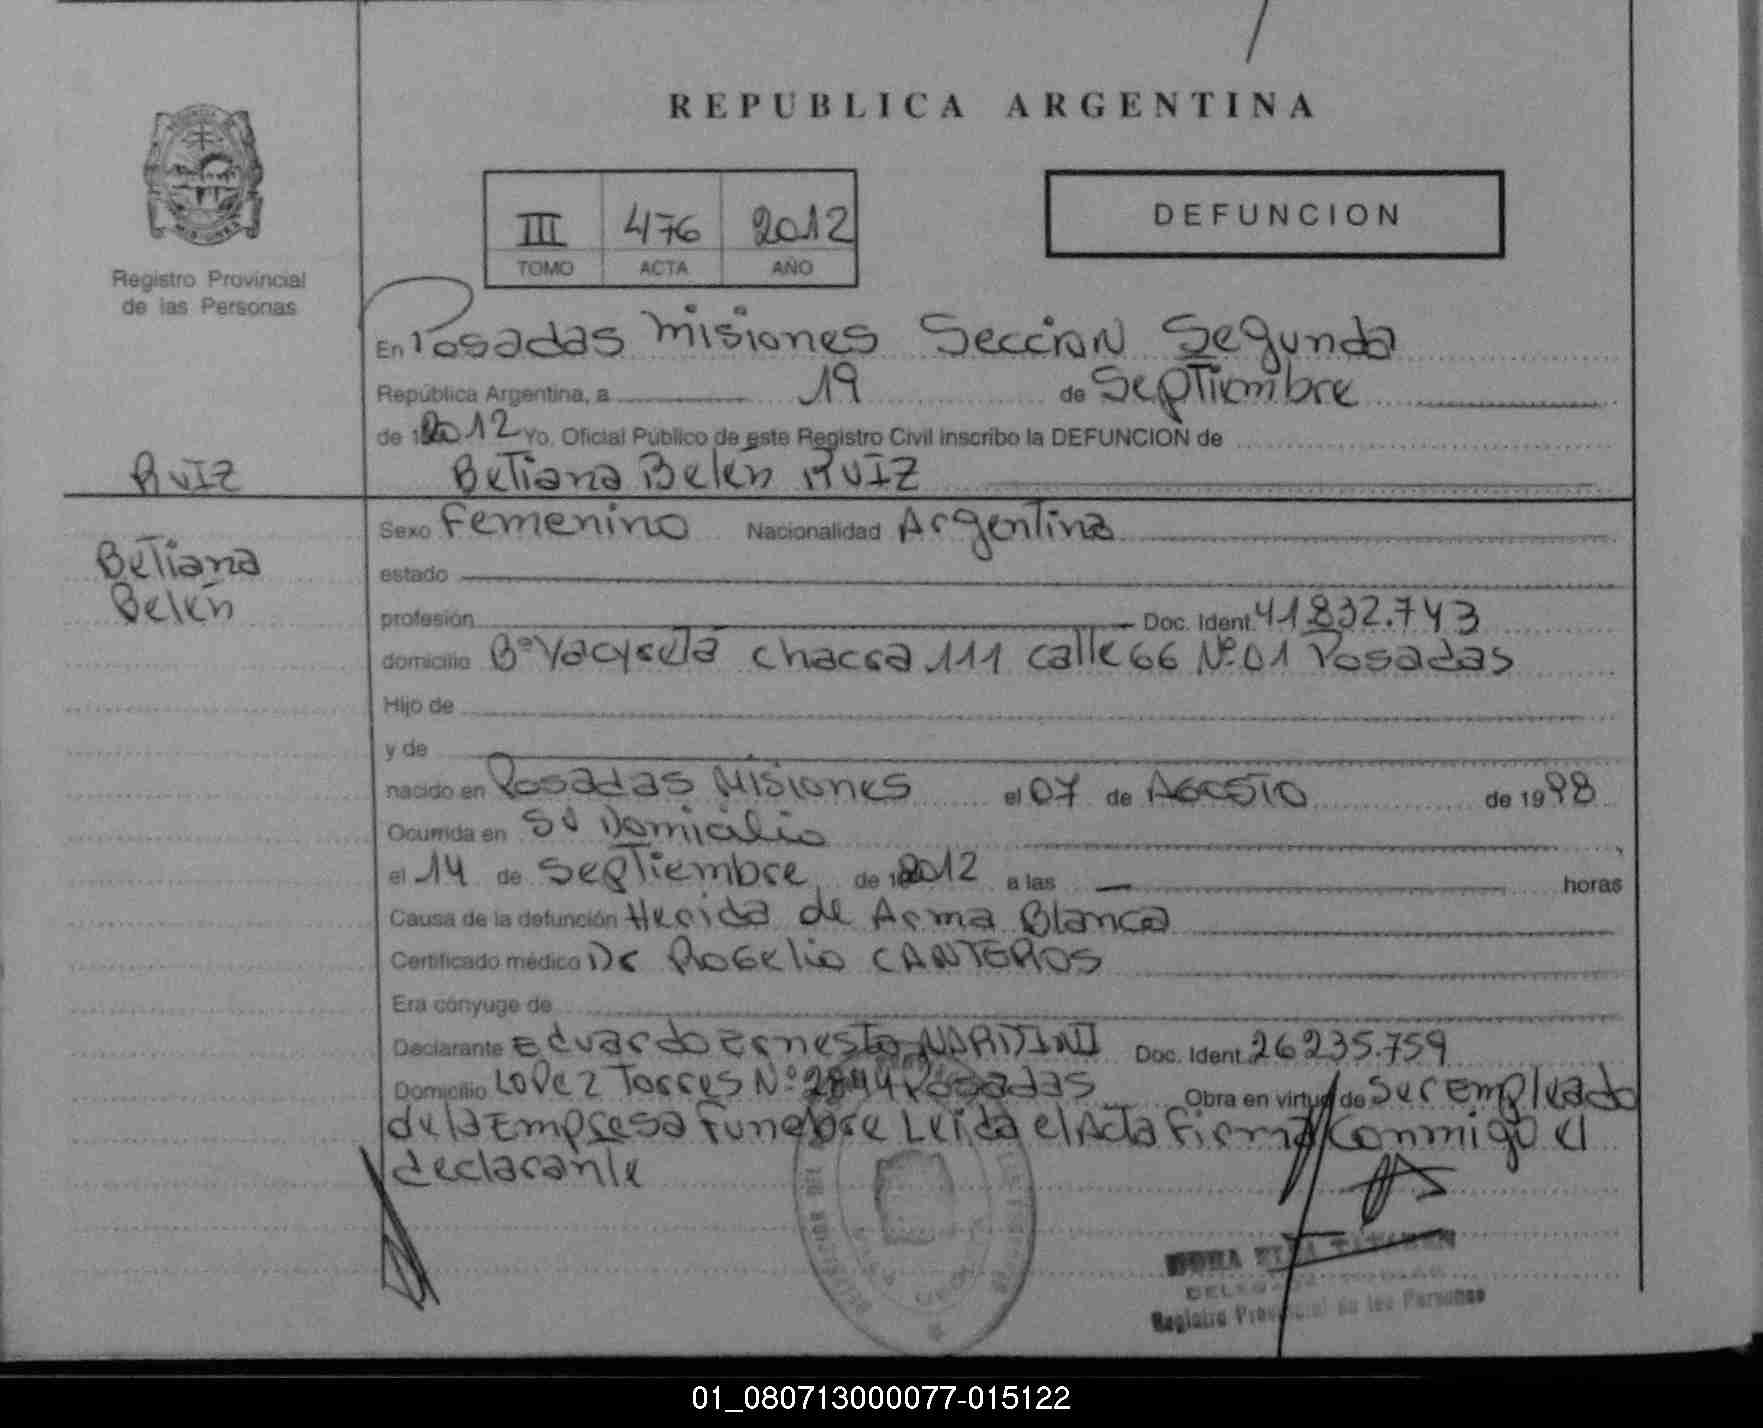 REPUBLICA ARGENTINA
III 476 2012
TOMO ACTA AÑO
DEFUNCION
Registro Provincial
de las Personas
En Posadas Misiones Seccion Segunda
República Argentina, a 19 de Septiembre
de 2012 Yo, Oficial Público de este Registro Civil inscribo la DEFUNCION de
Ruiz
Betiana Belén Ruiz
Betiana
Belén
Sexo Femenino Nacionalidad Argentina
estado
profesión Doc. Ident. 41832.743
domicilio Bº Yacyreta chacra 111 calle 66 Nº 01 Posadas
Hijo de
y de
nacido en Posadas Misiones el 07 de Agosto de 1998
Ocurrida en Su Domicilio
el 14 de Septiembre de 2012 a las horas
Causa de la defunción Herida de Arma Blanca
Certificado médico Dr Rogelio CANTEROS
Era cónyuge de
Declarante Eduardo Ernesto NARDINI Doc. Ident. 26235.759
Domicilio Lopez Torres Nº Posadas Obra en virtud de Ser Empleado
de la Empresa Funebre Leida el Acta Firma Conmigo el
declarante
Registro Provincial de las Personas
01_080713000077-015122